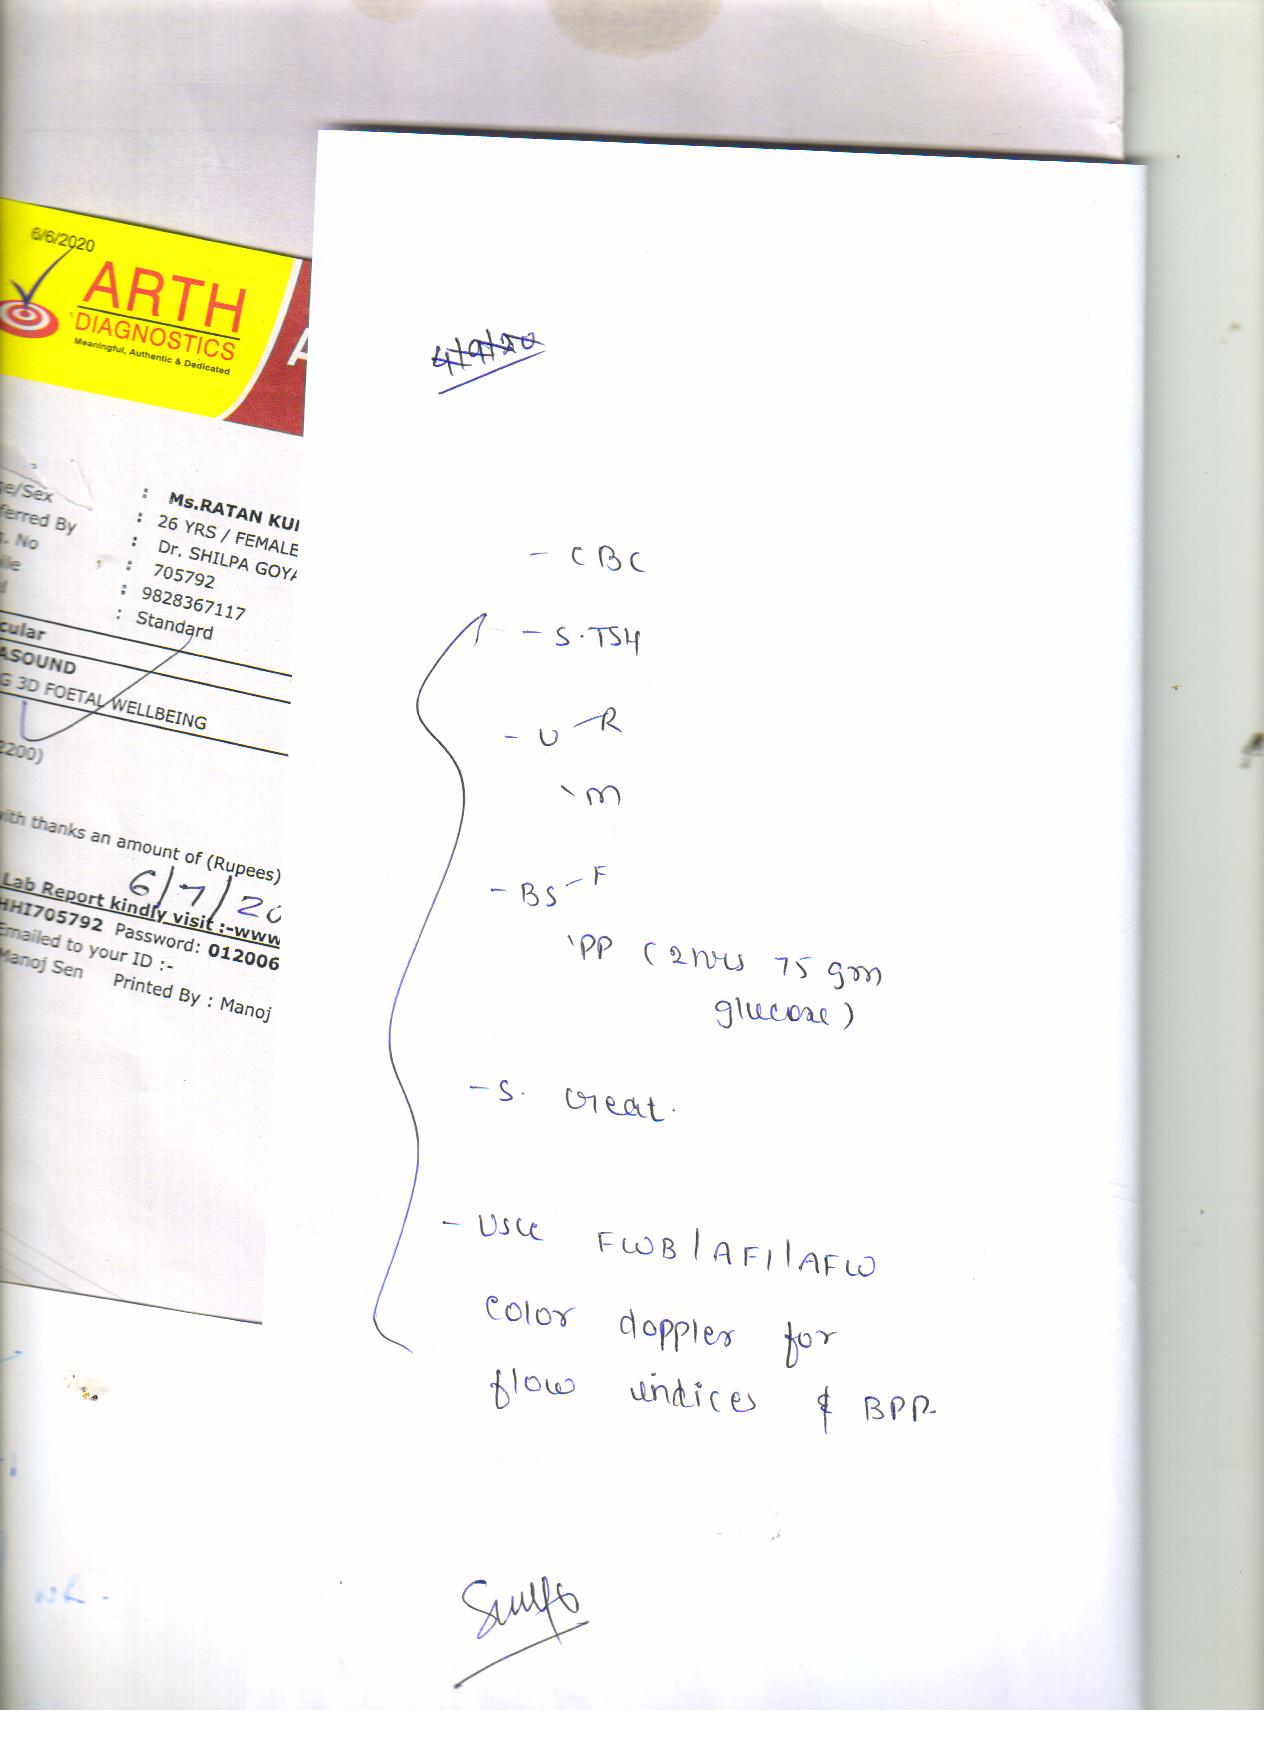 6/6/2020
ARTH
DIAGNOSTICS
Meaningful, Authentic & Dedicated
A
ge/Sex
ferred By
. No
ile
: Ms.RATAN KU
: 26 YRS / FEMALE
: Dr. SHILPA GOYA
: 705792
: 9828367117
: Standard
cular
ASOUND
G 3D FOETAL WELLBEING
2200)
with thanks an amount of (Rupees)
6/7/20
Lab Report kindly visit :-www
HHI705792 Password: 012006
Emailed to your ID :-
Manoj Sen Printed By : Manoj
4/9/20
- CBC
- S.TSH
- U - R
\ M
- BS - F
\ PP (2 hrs 75 gm
glucose)
- S. Creat.
- USG FWB / AFI / AFW
color doppler for
flow indices & BPP.